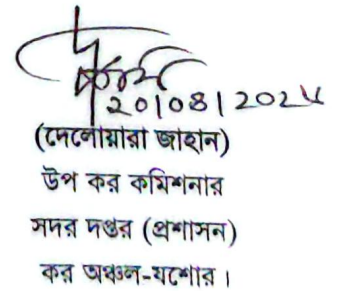 20/08/2025
(দেলোয়ারা জাহান)
উপ কর কমিশনার
সদর দপ্তর (প্রশাসন)
কর অঞ্চল-যশোর।